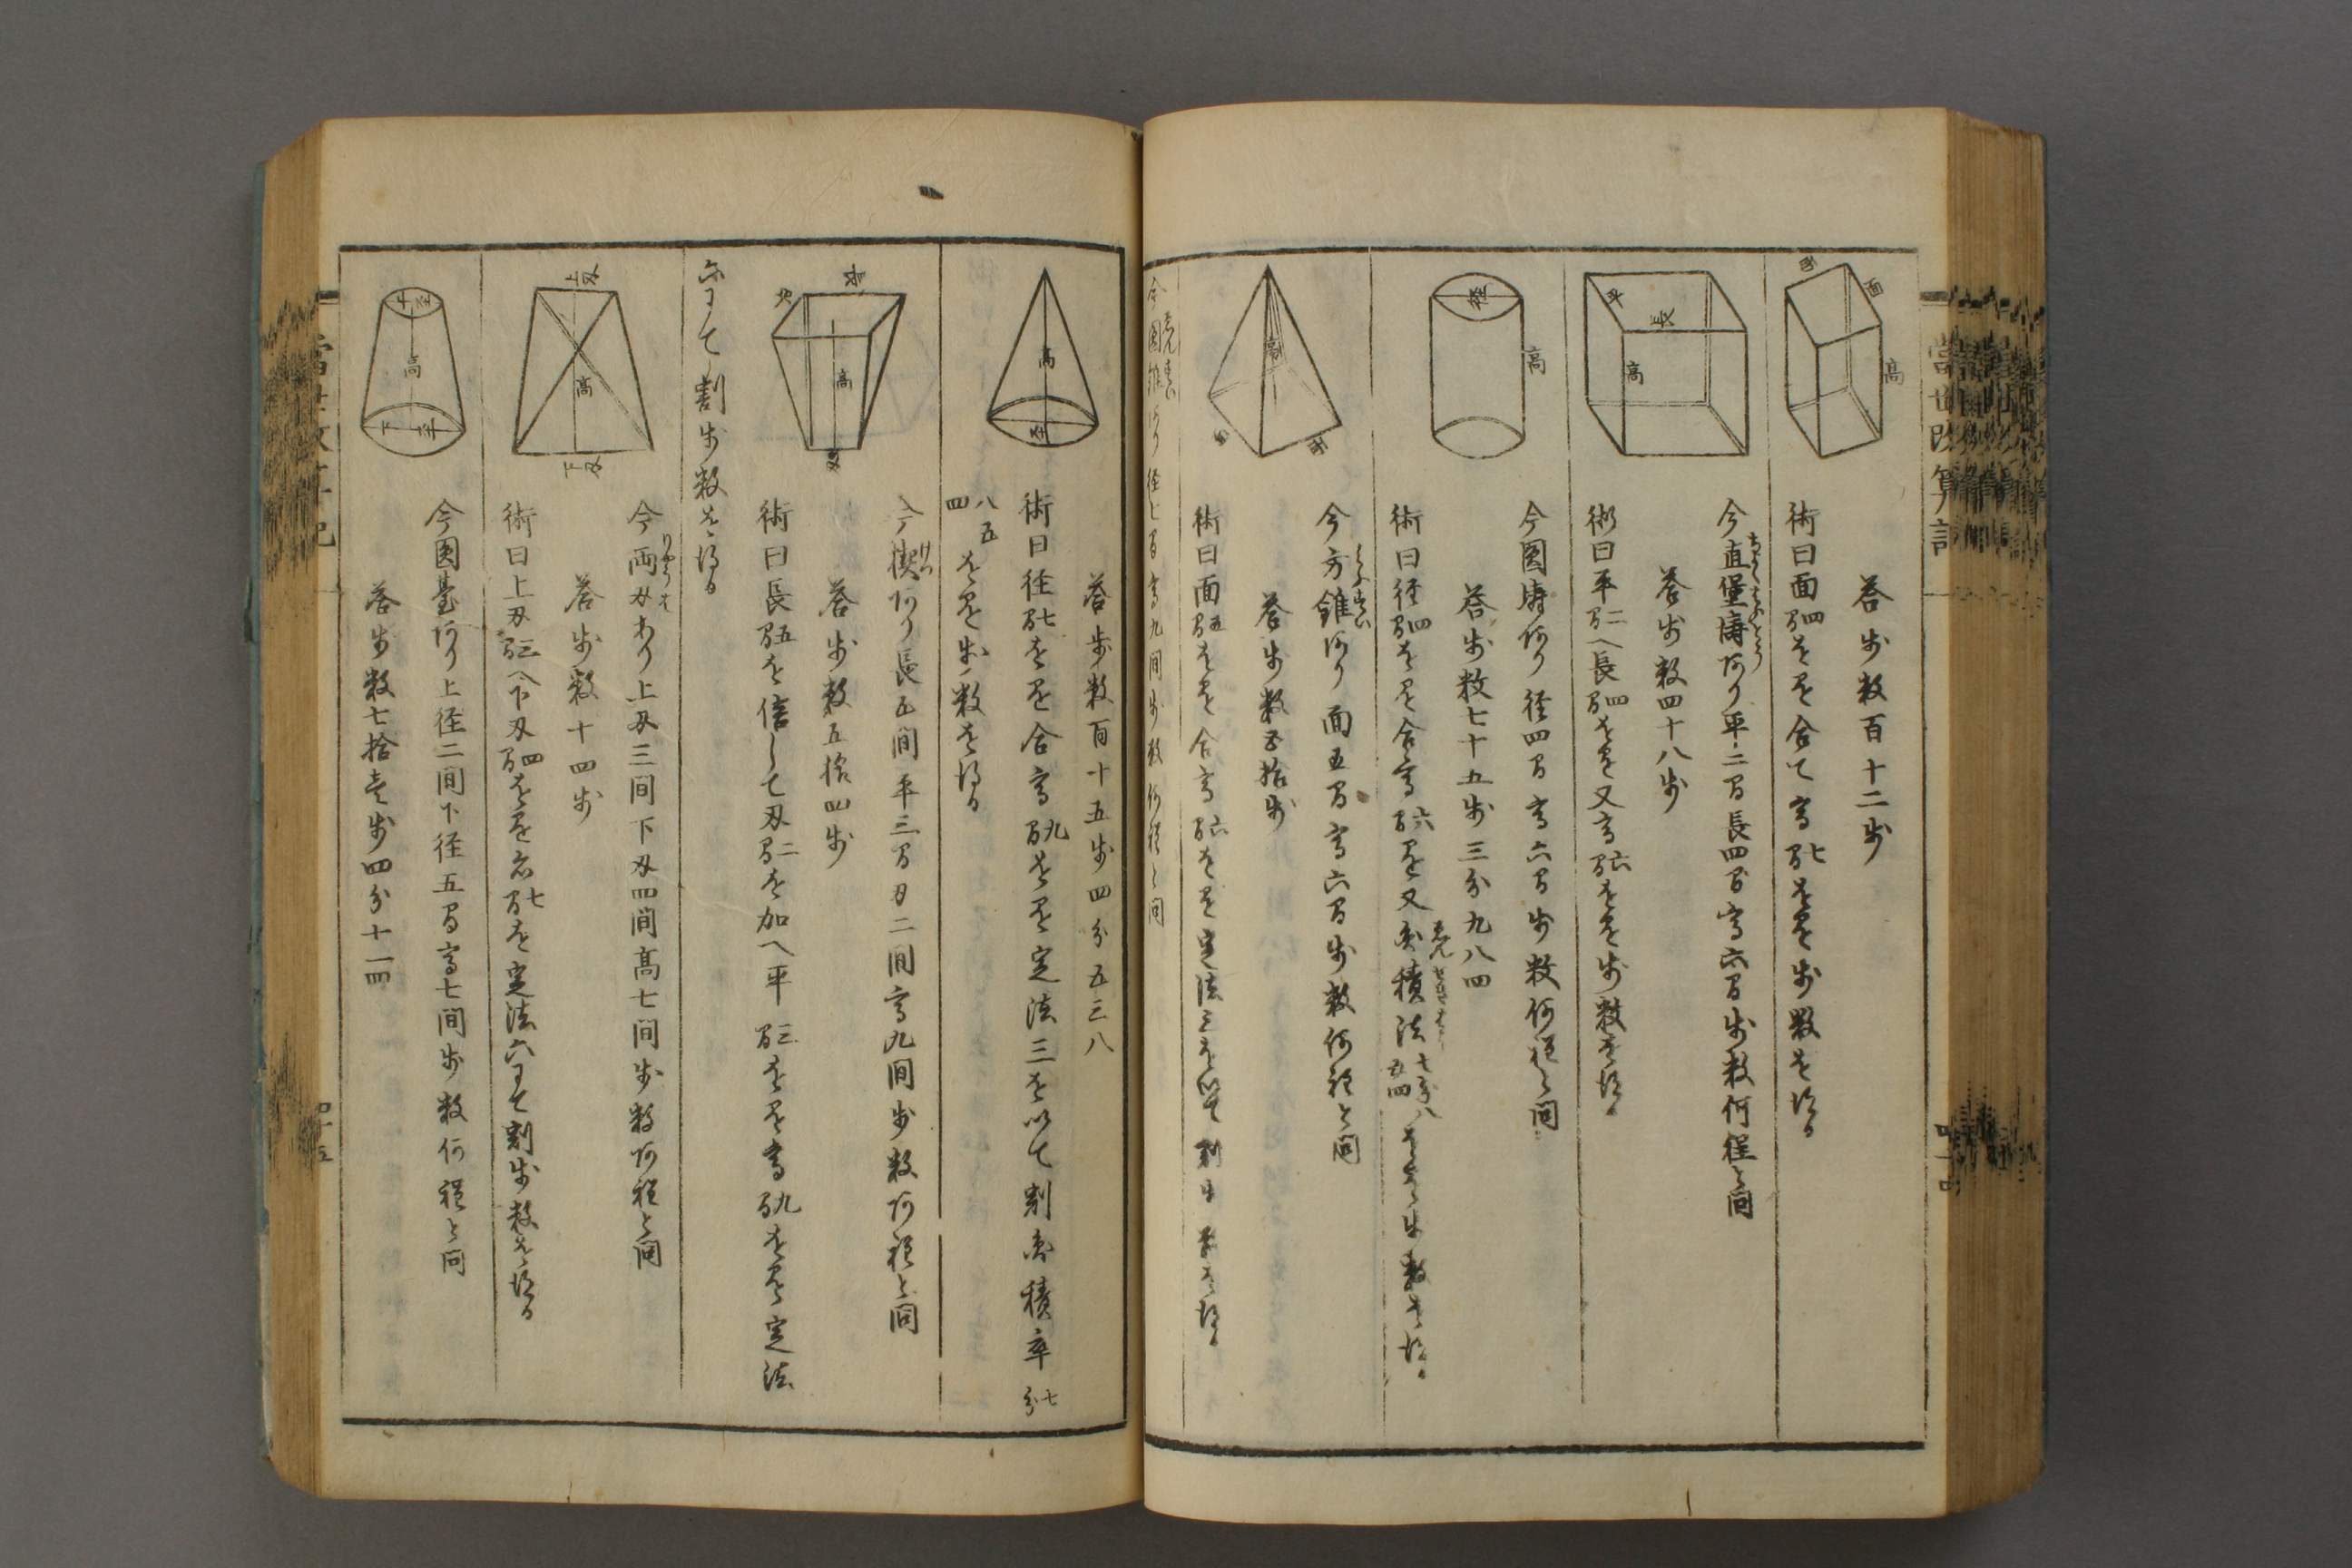 答歩数百十二歩
術曰面四間を是を合て高七間を是を歩数を得る
今直堡壔阿り平二間長四間高六間歩数何程と問
答歩数四十八歩
術曰平二間へ長四間を是を又高六間を是を歩数を得る
今圓壔阿り径四間高六間歩数何程と問
答歩数七十五歩三分九八四
術曰径四間を是を合高六間是を又圓積法七分八五四
今方錐阿り面五間高六間歩数何程と問
答歩数五拾歩
術曰面五間を是を合高六間を是を定法三を以て割歩数を得る
今圓錐阿り径七間高九間歩数何程と問
答歩数百十五歩四分五三八
術曰径七間を是を合高九間を是を定法三を以て割圓積率七分
八五四を是を歩数を得る
今楔阿り長五間平三間刃二間高九間歩数何程と問
答歩数五拾四歩
術曰長五間を倍して刃二間を加へ平三間を是を高九間を是を定法
六にて割歩数を得る
今両刃あり上刃三間下刃四間高七間歩数何程と問
答歩数十四歩
術曰上刃三間へ下刃四間を是を高七間を定法六にて割歩数を得る
今圓臺阿り上径二間下径五間高七間歩数何程と問
答歩数七拾壱歩四分十一四
面
高
平
長
高
径
高
高
面
高
径
長
平
高
刃
上刃
高
下刃
上径
高
下径
當世改算記